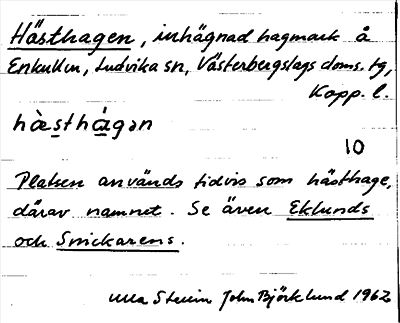 Hästhagen, inhägnad hagmark å
Enkullen, Ludvika sn, Västerbergslags doms. tg,
Kopp. l.
hὰ̱sthά̱gən
10
Platsen används tidvis som hästhage,
därav namnet. Se även Eklunds
och Snickarens.
Ulla Stenin John Björklund 1962